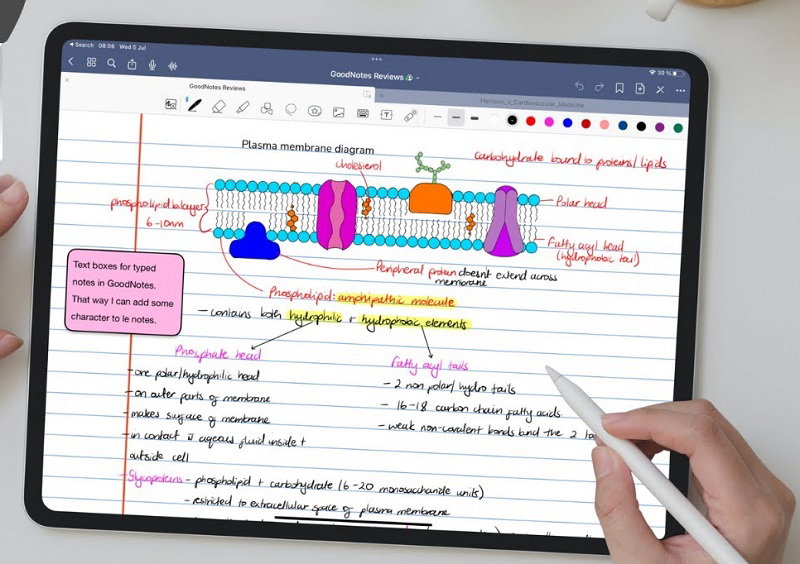 Search 08:08 Wed 5 Jul
30 %
GoodNotes Reviews
GoodNotes Reviews
Cardiovascular_Medicine
Plasma membrane diagram
cholesterol
carbohydrate bound to proteins/lipids
phospholipid bilayer
6-10nm
Polar head
Fatty acyl head
(hydrophobic tail)
Peripheral protein doesnt extend across
membrane
Text boxes for typed
notes in GoodNotes.
That way I can add some
character to le notes.
Phospholipid: amphipathic molecule
- contains both hydrophilic + hydrophobic elements
Phosphate head
- one polar/hydrophilic head
- on outer parts of membrane
- makes surface of membrane
- in contact w aqeous fluid inside +
outside cell
Fatty acyl tails
- 2 non polar/ hydro tails
- 16-18 carbon chain fatty acids
- weak non-covalent bonds bind the 2
Glycoproteins - phospholipid + carbohydrate (6-20 monosaccharide units)
- restricted to extracellular space of plasma membrane